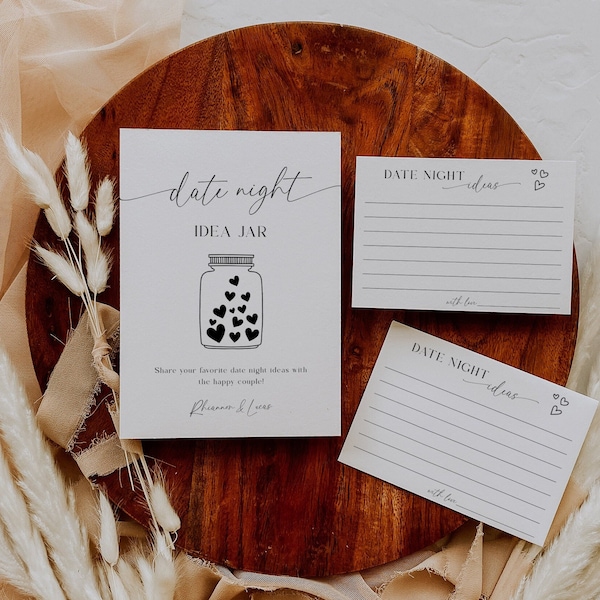 date night
IDEA JAR
Share your favorite date night ideas with
the happy couple!
Rhiannon & Lucas
DATE NIGHT ideas
with love
DATE NIGHT ideas
with love